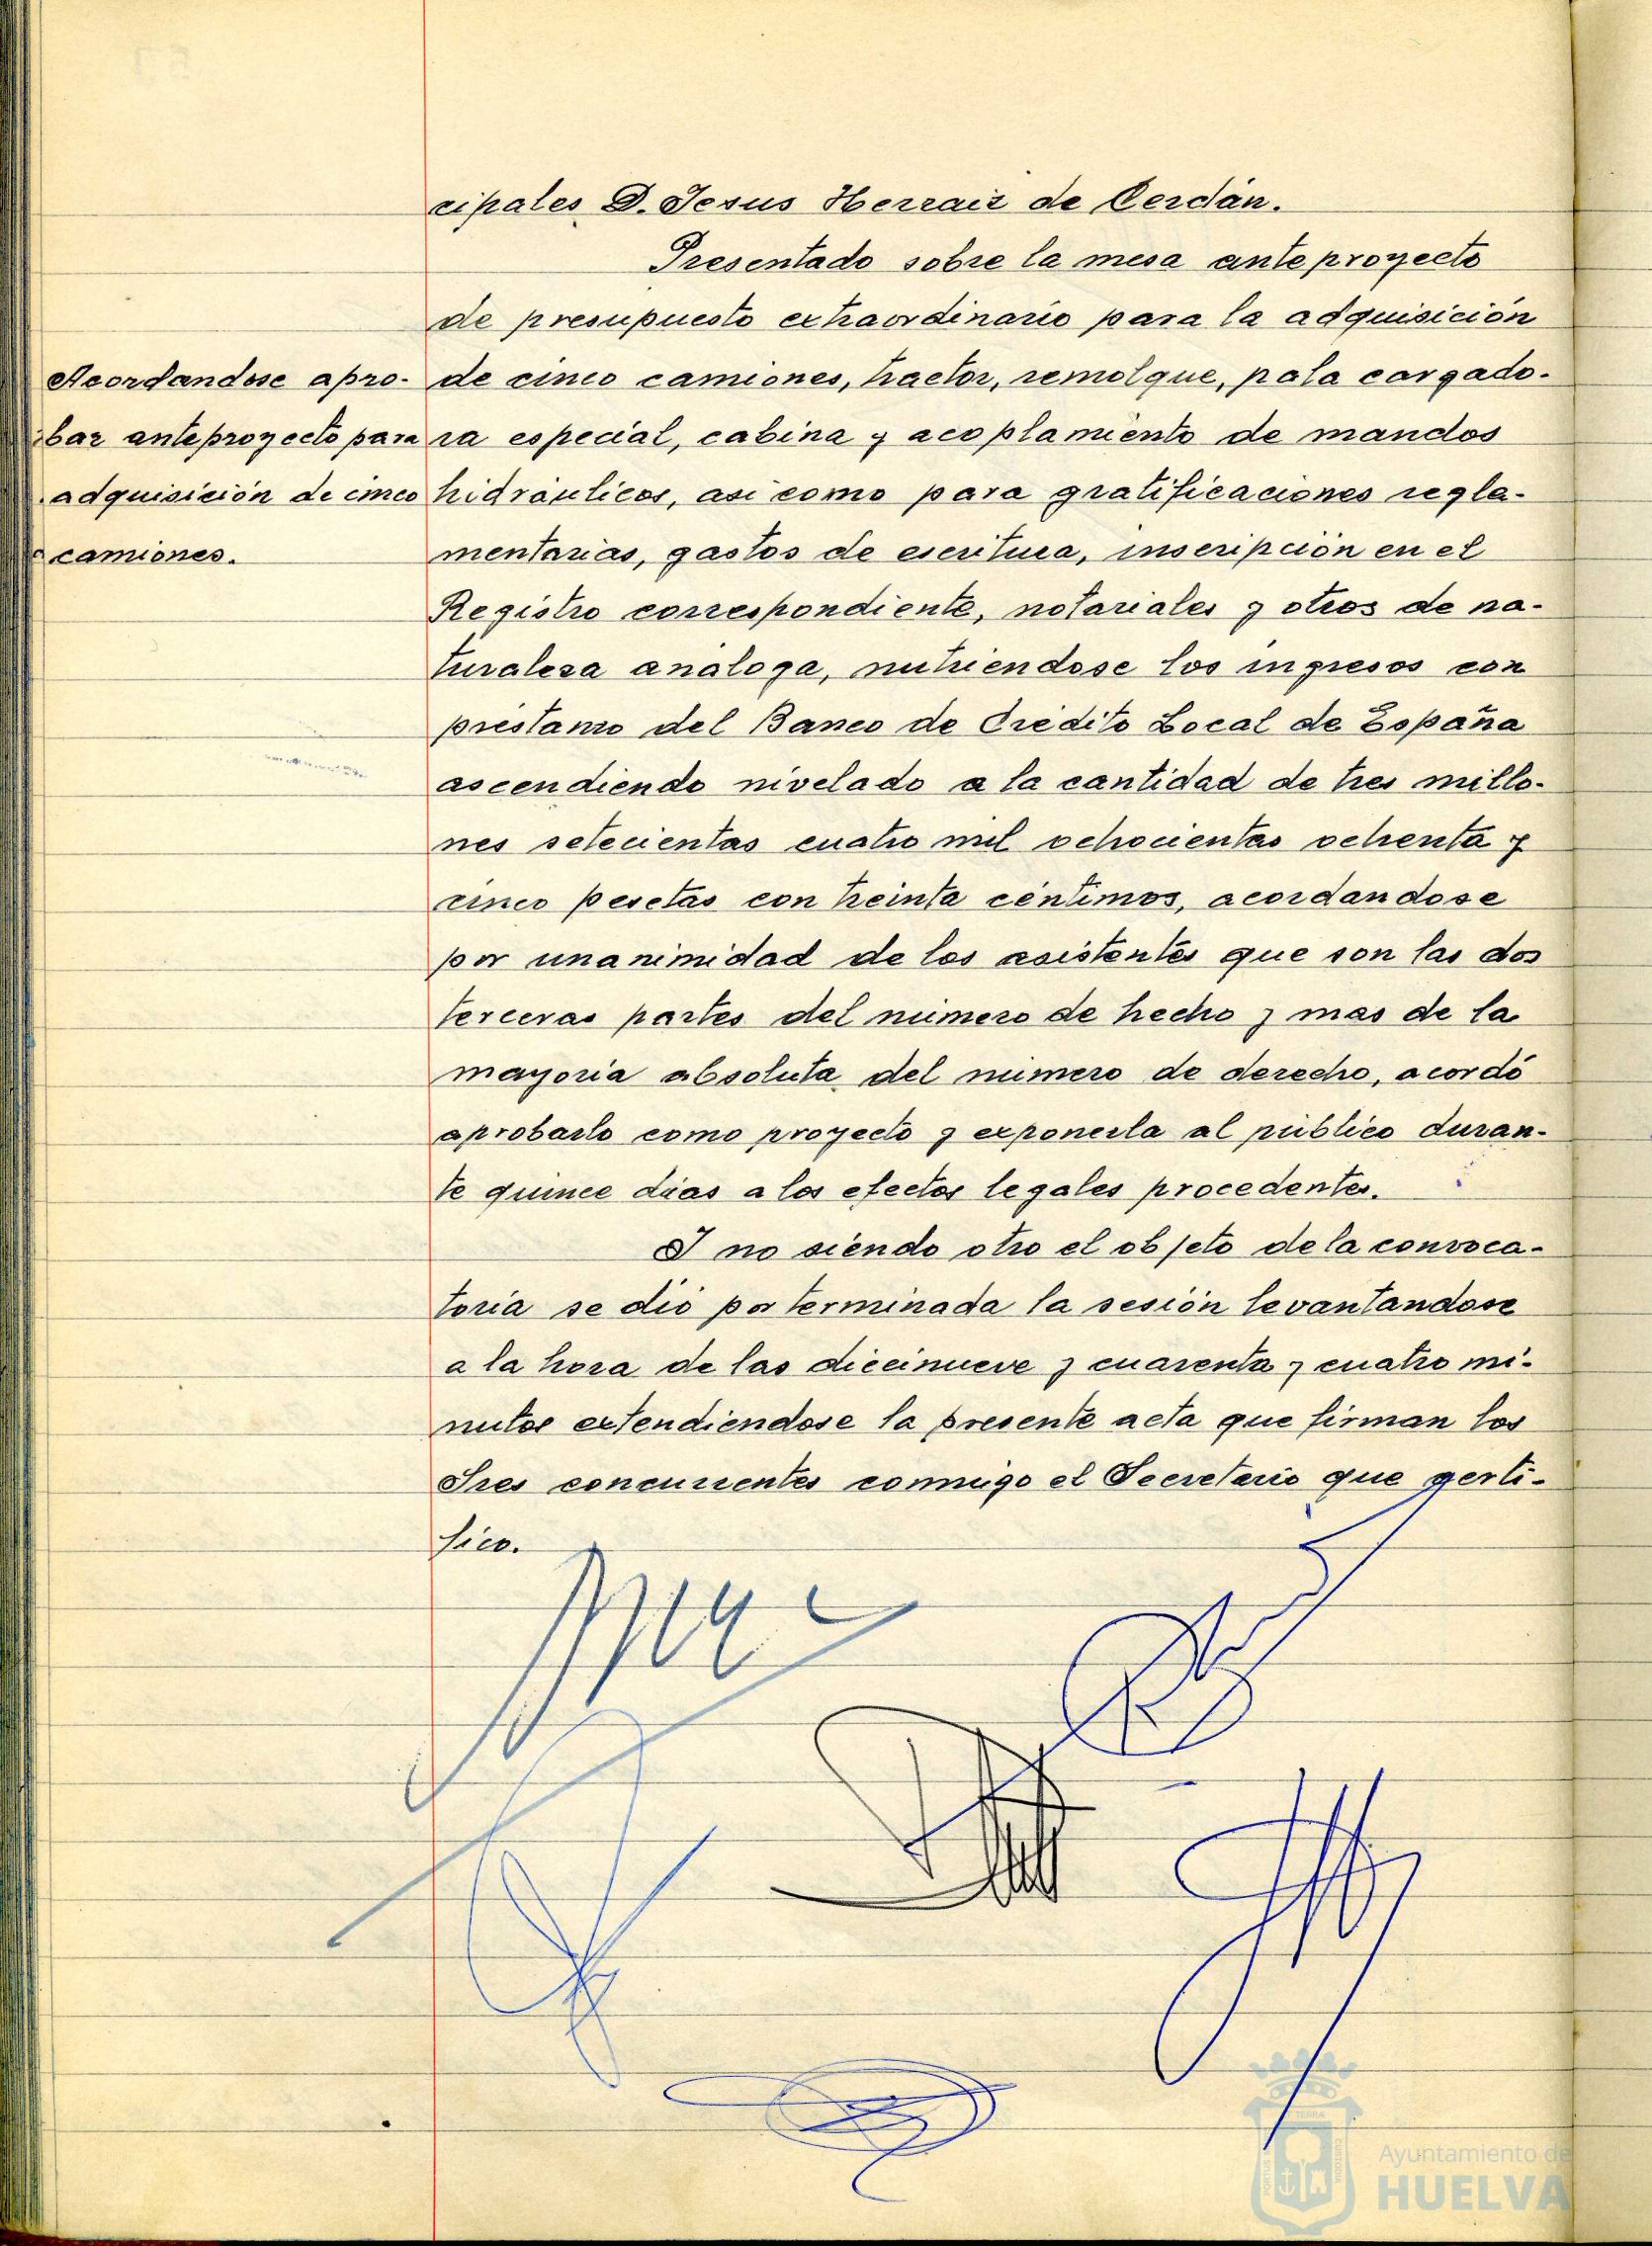 cipales D. Jesus Herraiz de Cerdán.
Presentado sobre la mesa anteproyecto
de presupuesto extraordinario para la adquisición
Acordandose apro-
bar anteproyecto para
adquisición de cinco
camiones.
de cinco camiones, tractor, remolque, pala cargado-
ra especial, cabina y acoplamiento de mandos
hidráulicos, asi como para gratificaciones regla-
mentarias, gastos de escritura, inscripción en el
Registro correspondiente, notariales y otros de na-
turaleza analoga, nutriendose los ingresos con
préstamo del Banco de Crédito Local de España
ascendiendo nivelado a la cantidad de tres millo-
nes setecientas cuatro mil ochocientas ochenta y
cinco pesetas con treinta céntimos, acordandose
por unanimidad de los asistentes que son las dos
terceras partes del número de hecho y mas de la
mayoria absoluta del número de derecho, acordó
aprobarlo como proyecto y exponerla al público duran-
te quince dias a los efectos legales procedentes.
Y no siendo otro el objeto de la convoca-
toria se dió por terminada la sesión levantandose
a la hora de las diecinueve y cuarenta y cuatro mi-
nutos extendiendose la presente acta que firman los
Sres concurrentes conmigo el Secretario que certi-
fico.
Ayuntamiento de
HUELVA